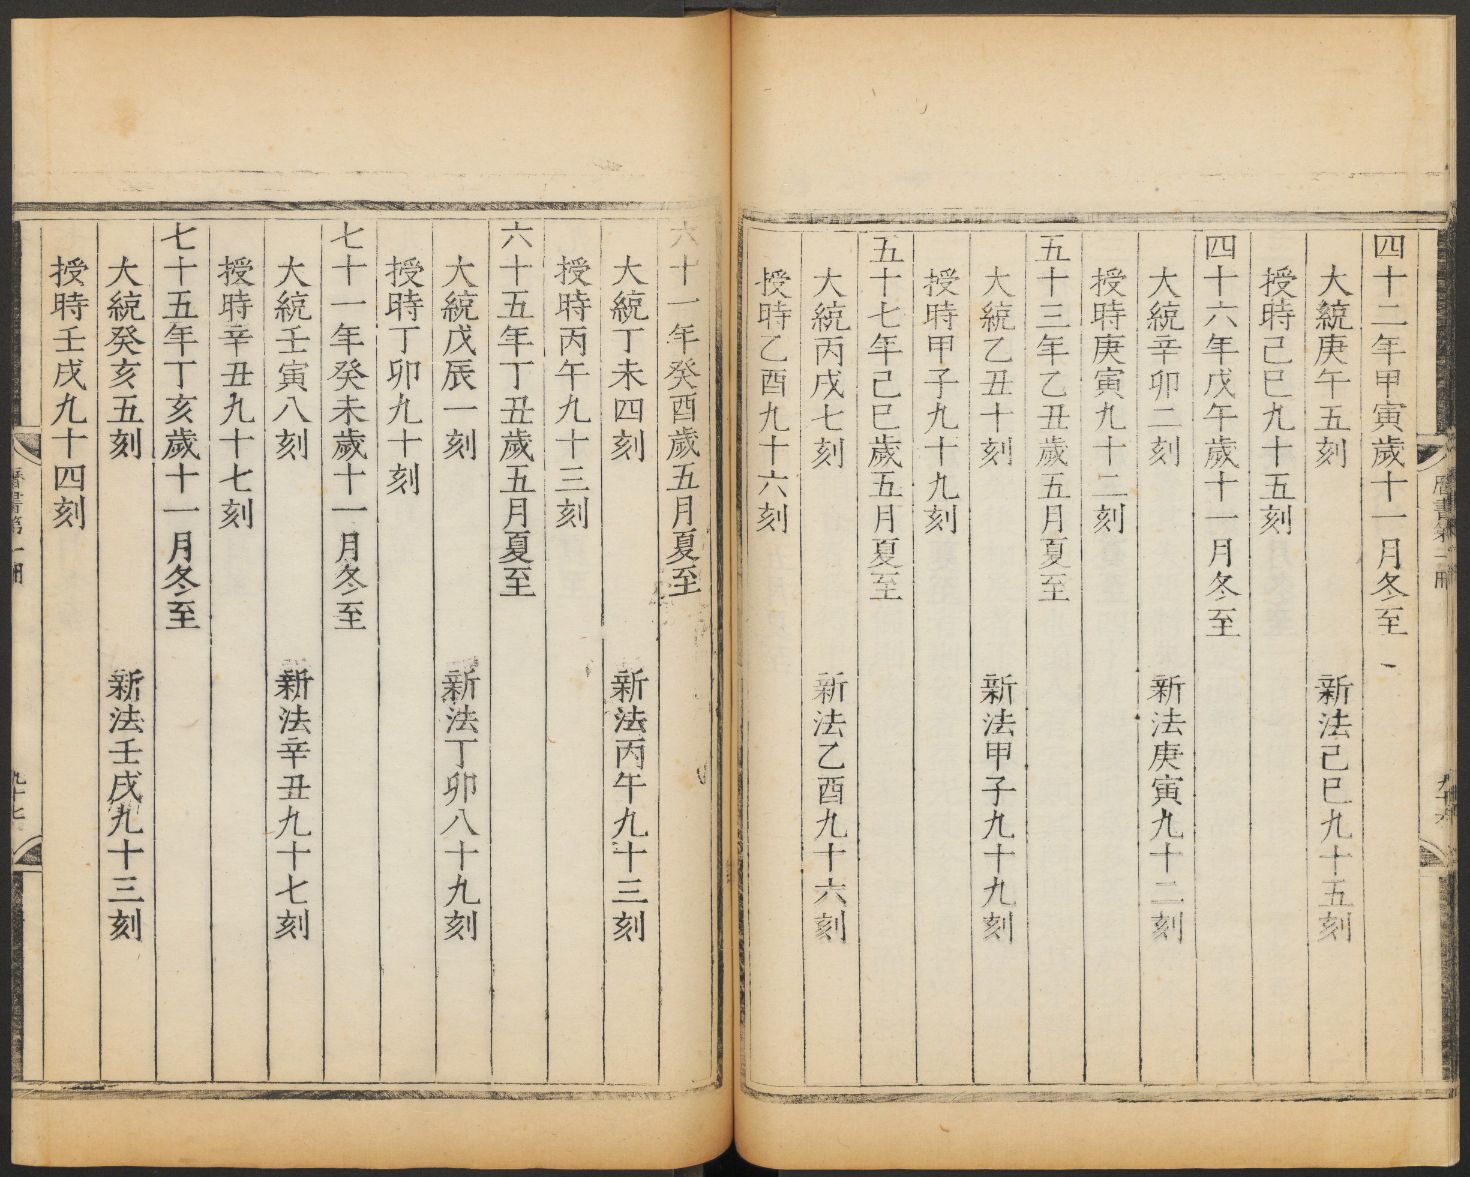 四十二年甲寅歲十一月冬至
大統庚午五刻 新法己巳九十五刻
授時己巳九十五刻
四十六年戊午歲十一月冬至
大統辛卯二刻 新法庚寅九十二刻
授時庚寅九十二刻
五十三年乙丑歲五月夏至
大統乙丑十刻 新法甲子九十九刻
授時甲子九十九刻
五十七年己巳歲五月夏至
大統丙戌七刻 新法乙酉九十六刻
授時乙酉九十六刻
六十一年癸酉歲五月夏至
大統丁未四刻 新法丙午九十三刻
授時丙午九十三刻
六十五年丁丑歲五月夏至
大統戊辰一刻 新法丁卯八十九刻
授時丁卯九十刻
七十一年癸未歲十一月冬至
大統壬寅八刻 新法辛丑九十七刻
授時辛丑九十七刻
七十五年丁亥歲十一月冬至
大統癸亥五刻 新法壬戌九十三刻
授時壬戌九十四刻
曆書第一冊
九十七